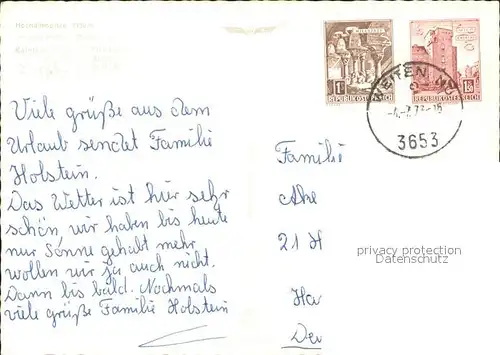 Viele grüße aus dem
Urlaub sendet Familie
Holstein.
Das Wetter ist hier sehr
schön, wir haben bis heute
nur Sonne gehabt mehr
wollen wir ja auch nicht.
Dann bis bald. Nochmals
viele grüße Familie Holstein
MILLSTATT
1S
REPUBLIK ÖSTERREICH
1.80
REPUBLIK ÖSTERREICH
WEITEN
3653
Familie
21 H
Ha
privacy protection
Datenschutz